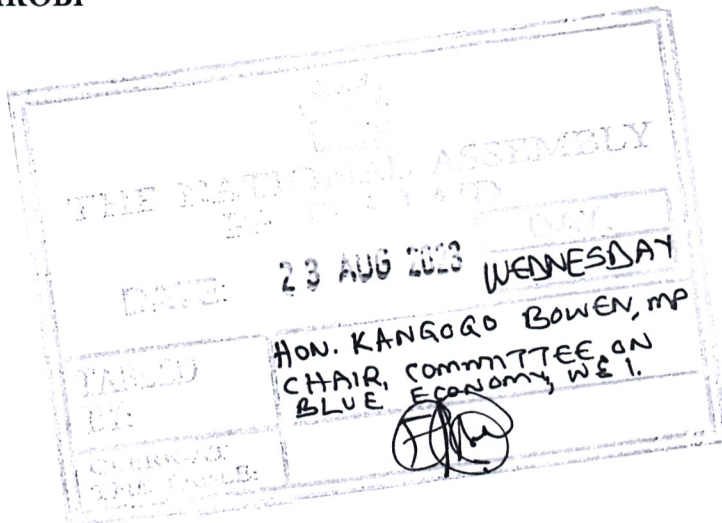 THE NATIONAL ASSEMBLY
DATE: 23 AUG 2023 DAY. WEDNESDAY
TABLED BY:
HON. KANGOGO BOWEN, MP
CHAIR, COMMITTEE ON
BLUE ECONOMY, W & I.
CLERK-AT-
THE-TABLE: